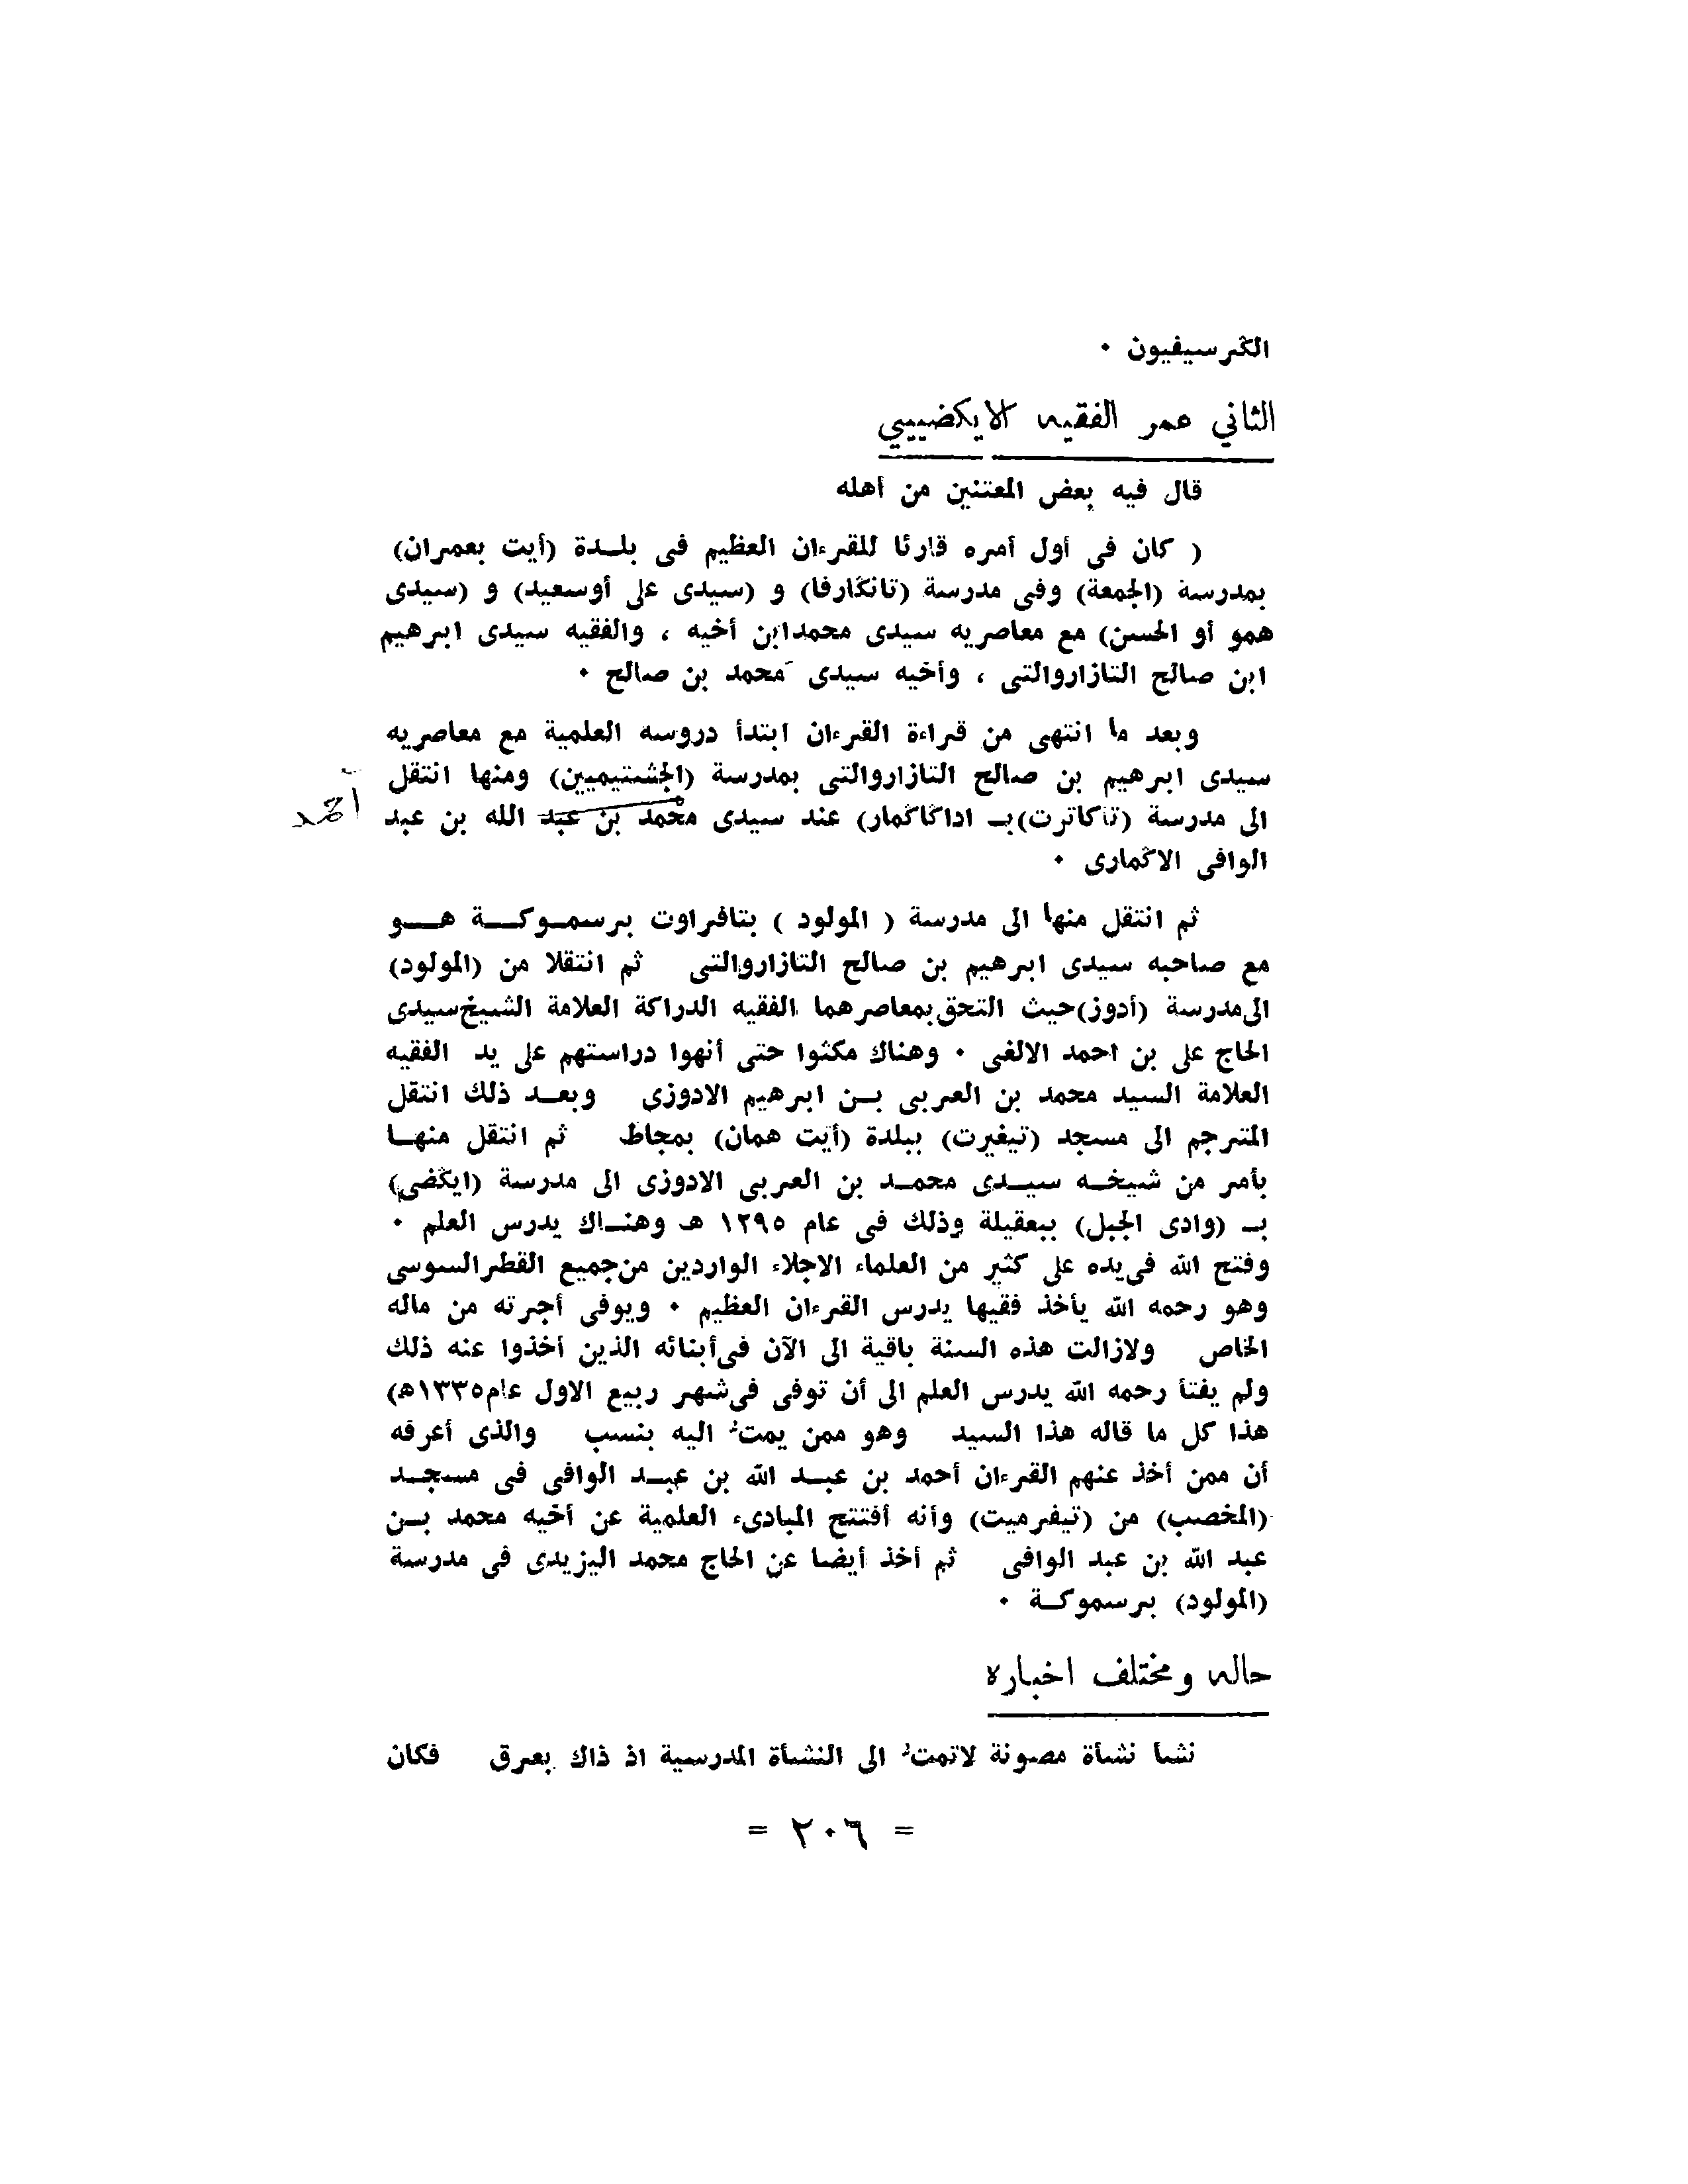 الڭرسيفيون ٠
الثاني عمر الفقيه الايكضييي
قال فيه بعض المعتنين من أهله
( كان فى أول أمره قارئا للقرءان العظيم فى بلدة (أيت بعمران)
بمدرسة (الجمعة) وفى مدرسة (تانڭارفا) و (سيدى على أوسعيد) و (سيدى
همو أو الحسن) مع معاصريه سيدى محمدابن أخيه ، والفقيه سيدى ابرهيم
ابن صالح التازاروالتى ، وأخيه سيدى محمد بن صالح ٠
وبعد ما انتهى من قراءة القرءان ابتدأ دروسه العلمية مع معاصريه
سيدى ابرهيم بن صالح التازاروالتى بمدرسة (الجشتيميين) ومنها انتقل
الى مدرسة (تاكاترت)بـ اداڭاڭمار) عند سيدى محمد بن عبد الله بن عبد
أحمد
الوافى الاڭمارى ٠
ثم انتقل منها الى مدرسة ( المولود ) بتافراوت برسموكة هو
مع صاحبه سيدى ابرهيم بن صالح التازاروالتى ثم انتقلا من (المولود)
الى مدرسة (أدوز) حيث التحق بمعاصرهما الفقيه الدراكة العلامة الشيخ سيدى
الحاج على بن احمد الالغى ٠ وهناك مكثوا حتى أنهوا دراستهم على يد الفقيه
العلامة السيد محمد بن العربى بن ابرهيم الادوزى وبعد ذلك انتقل
المترجم الى مسجد (تيغيرت) ببلدة (أيت همان) بمجاط ثم انتقل منها
بأمر من شيخه سيدى محمد بن العربى الادوزى الى مدرسة (ايڭضى)
بـ (وادى الجبل) ببعقيلة وذلك فى عام ١٢٩٥ هـ وهناك يدرس العلم ٠
وفتح الله فى يده على كثير من العلماء الاجلاء الواردين من جميع القطر السوسى
وهو رحمه الله يأخذ فقيها يدرس القرءان العظيم ٠ ويوفى أجرته من ماله
الخاص ولازالت هذه السنة باقية الى الآن فى أبنائه الذين أخذوا عنه ذلك
ولم يفتأ رحمه الله يدرس العلم الى أن توفى فى شهر ربيع الاول عام ١٣٣٥هـ)
هذا كل ما قاله هذا السيد وهو ممن يمتُ اليه بنسب والذى أعرفه
أن ممن أخذ عنهم القرءان أحمد بن عبد الله بن عبد الوافى فى مسجد
(المخصب) من (تيفرميت) وأنه أفتتح المبادىء العلمية عن أخيه محمد بن
عبد الله بن عبد الوافى ثم أخذ أيضا عن الحاج محمد اليزيدى فى مدرسة
(المولود) برسموكة ٠
حاله ومختلف اخباره
نشأ نشأة مصونة لاتمتُ الى النشأة المدرسية اذ ذاك بعرق فكان
= ٢٠٦ =